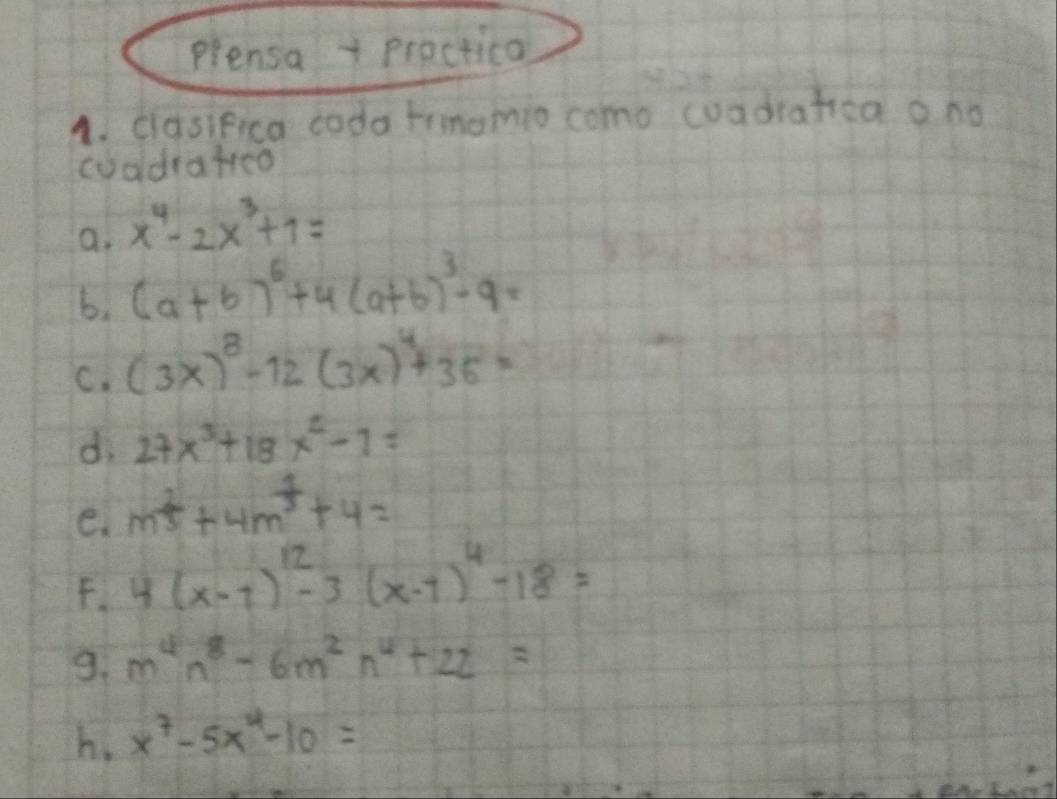 Piensa + Practica
1. clasifica cada trinomio como cuadratica o no
cuadratico
a. x⁴-2x³+1=
b. (a+b)⁶+4(a+b)³-9=
c. (3x)⁸-12(3x)⁴+36=
d. 27x³+18x²-1=
e. m^(2/5)+4m^(1/5)+4=
F. 4(x-1)¹²-3(x-1)⁴-18=
g. m⁴n⁸-6m²n⁴+22=
h. x⁷-5x⁴-10=